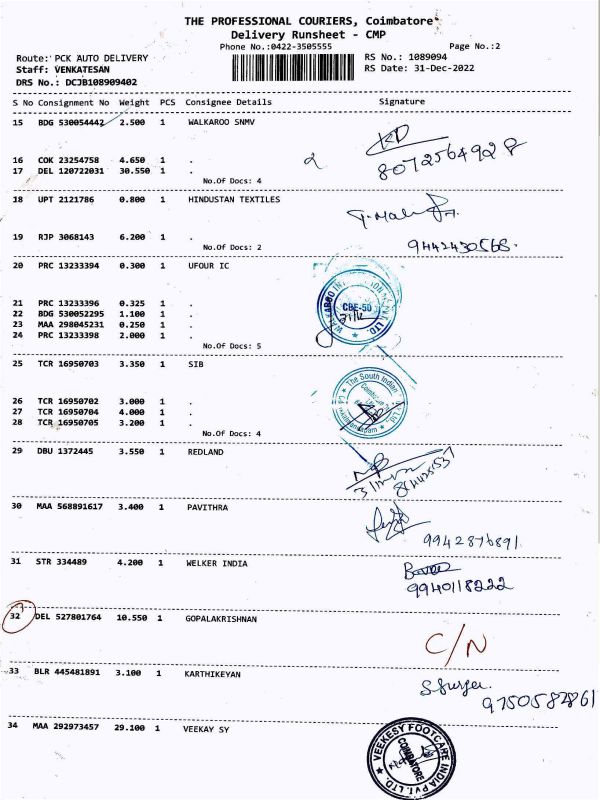 THE PROFESSIONAL COURIERS, Coimbatore
Delivery Runsheet - CMP
Phone No.:0422-3505555 Page No.:2
Route: PCK AUTO DELIVERY RS No.: 1089094
Staff: VENKATESAN RS Date: 31-Dec-2022
DRS No.: DCJB108909402
S No Consignment No Weight PCS Consignee Details Signature
15 BDG 530054442 2.500 1 WALKAROO SNMV
KD
8072564928
16 COK 23254758 4.650 1 .
17 DEL 120722031 30.550 1 .
No.Of Docs: 4
18 UPT 2121786 0.800 1 HINDUSTAN TEXTILES
19 RJP 3068143 6.200 1 .
No.Of Docs: 2 9442430568.
20 PRC 13233394 0.300 1 UFOUR IC
21 PRC 13233396 0.325 1 .
22 BDG 530052295 1.100 1 .
23 MAA 298045231 0.250 1 .
24 PRC 13233398 2.000 1 .
No.Of Docs: 5
WALKAROO PVT. LTD.
CBE-50
31/12
25 TCR 16950703 3.350 1 SIB
26 TCR 16950702 3.000 1 .
27 TCR 16950704 4.000 1 .
28 TCR 16950705 3.200 1 .
No.Of Docs: 4
The South Indian
29 DBU 1372445 3.550 1 REDLAND
30 MAA 568891617 3.400 1 PAVITHRA
9942876891
31 STR 334489 4.200 1 WELKER INDIA
9940118222
32 DEL 527801764 10.550 1 GOPALAKRISHNAN
C/N
33 BLR 445481891 3.100 1 KARTHIKEYAN
34 MAA 292973457 29.100 1 VEEKAY SY
VEEKESY FOOTCARE INDIA PVT. LTD.
COIMBATORE